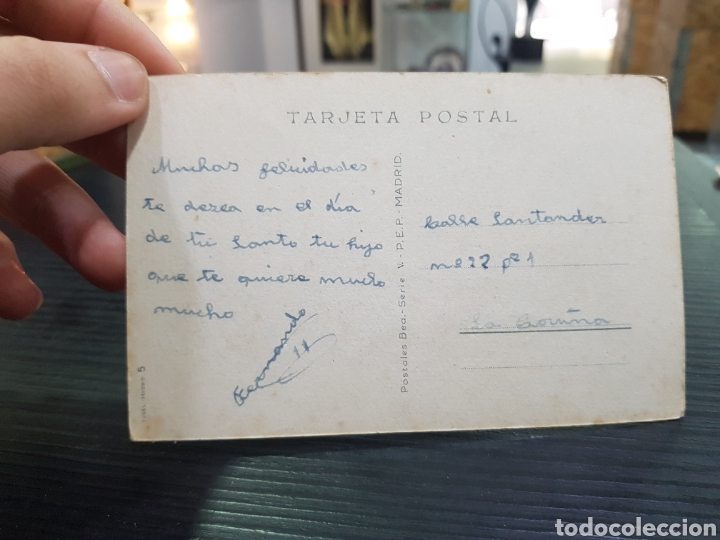 TARJETA POSTAL
Muchas felicidades
te desea en el día
de tu Santo tu hijo
que te quiere mucho
mucho
Fernando
Postales Bea.- Serie V.- P.E.P.- MADRID.
Calle Santander
nº 22 pº 1
La Coruña
5
todocoleccion